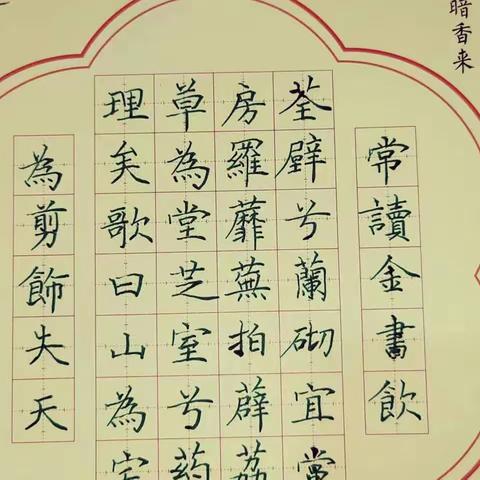 暗香来
常讀金書飲
荃壁兮蘭砌宜當
房羅蘼蕪拍薜荔
草為堂芝室兮葯
理矣歌曰山為宅
為剪飾失天